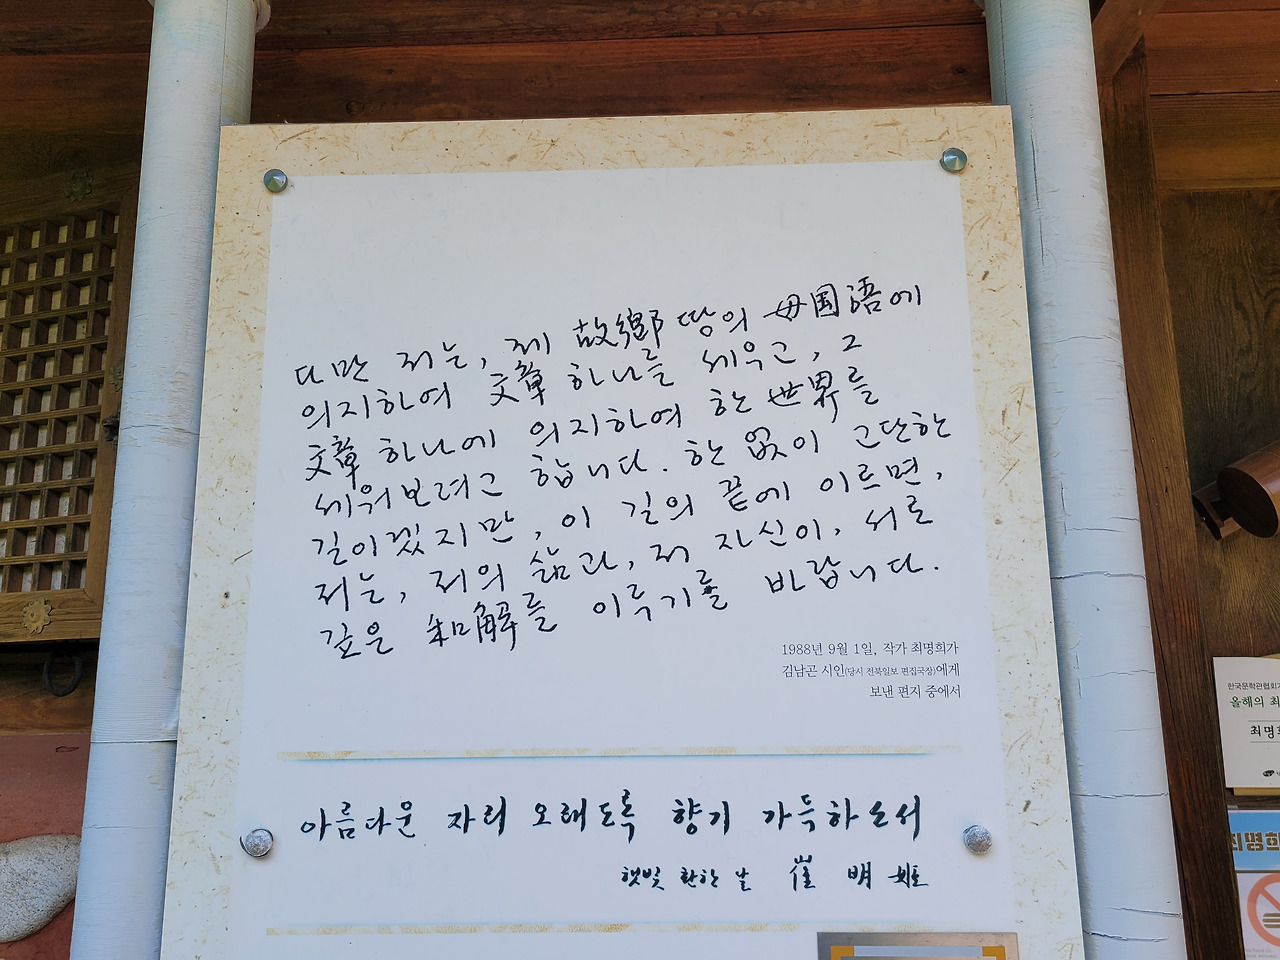 다만 저는, 제 故鄕 땅의 母国語에
의지하여 文章 하나를 세우고, 그
文章 하나에 의지하여 한 世界를
세워보려고 합니다. 한없이 고단한
길이겠지만, 이 길의 끝에 이르면,
저는, 저의 삶과, 저 자신이, 서로
깊은 和解를 이루기를 바랍니다.
1988년 9월 1일, 작가 최명희가
김남곤 시인(당시 전북일보 편집국장)에게
보낸 편지 중에서
아름다운 자리 오래도록 향기 가득하소서
햇빛 환한 날 崔明姬
한국문학관협회
올해의 최
최명희
최명희